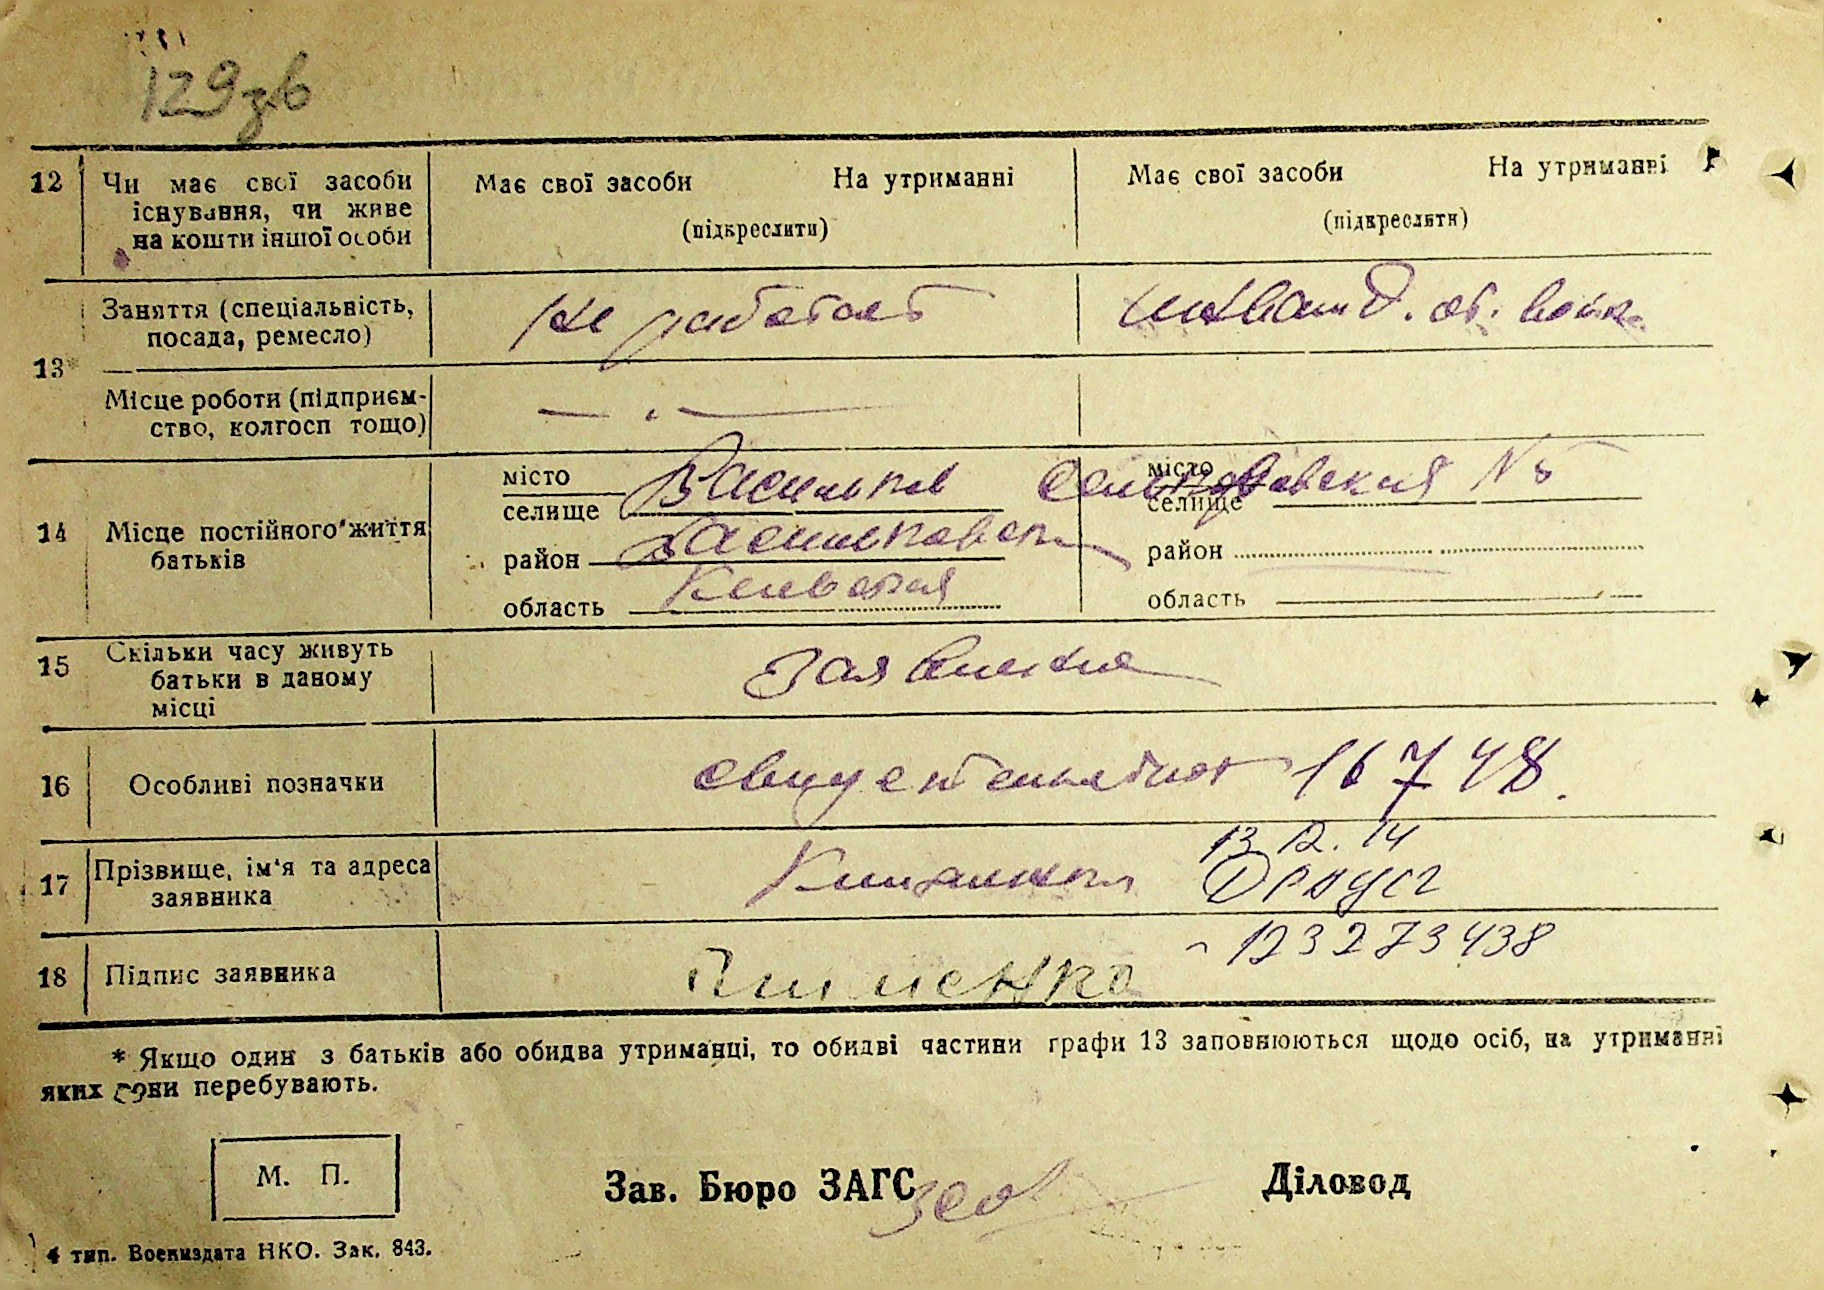 129 зв
12 Чи має свої засоби існування, чи живе на кошти іншої особи
Має свої засоби На утриманні
(підкреслити)
Має свої засоби На утриманні
(підкреслити)
13*
Заняття (спеціальність, посада, ремесло)
Не работает
инвалид. от. войн.
Місце роботи (підприєм-
ство, колгосп тощо)
— " —
14 Місце постійного життя батьків
місто
селище
Васильков
район
область Киевская
місто
селище
№ 5
район
область
15 Скільки часу живуть
батьки в даному
місці
16 Особливі позначки
16748.
17 Прізвище, ім'я та адреса
заявника
13 12. 14
ДРАЦСГ
18 Підпис заявника
123273438
* Якщо один з батьків або обидва утриманці, то обидві частини графи 13 заповнюються щодо осіб, на утриманні
яких вони перебувають.
М. П.
Зав. Бюро ЗАГС
Діловод
4 тип. Воениздата НКО. Зак. 843.